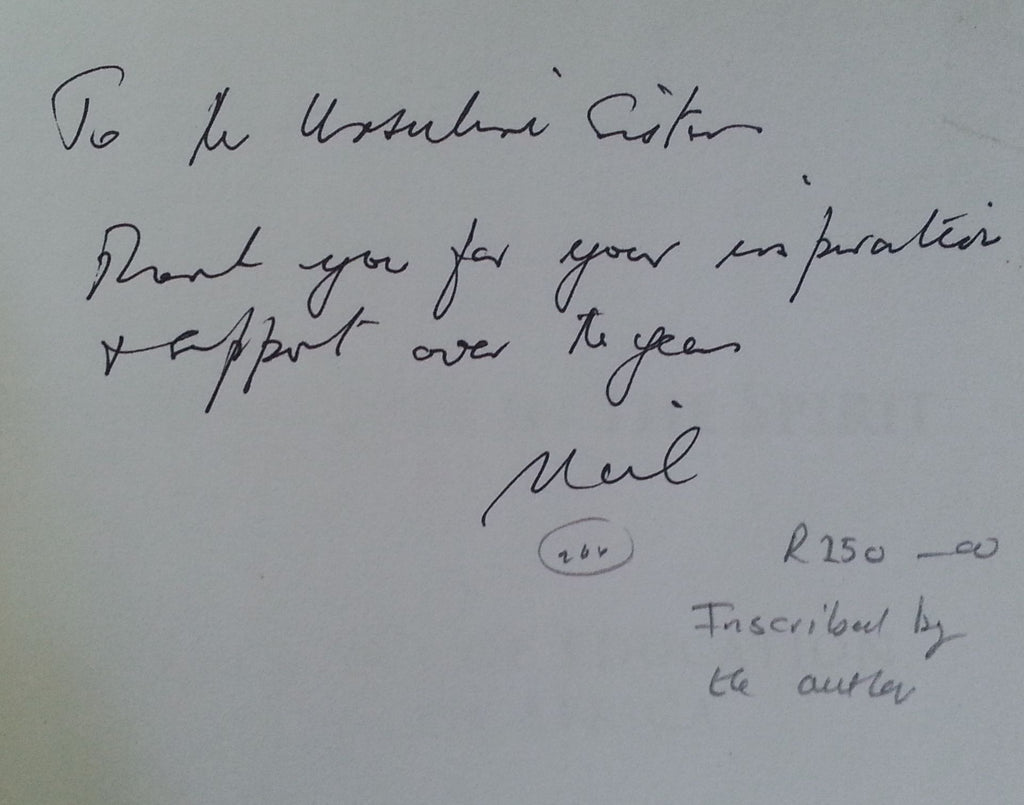 To the Ursuline Sisters
Thank you for your inspiration
+ support over the years
Neil
R250 —00
Inscribed by
the author